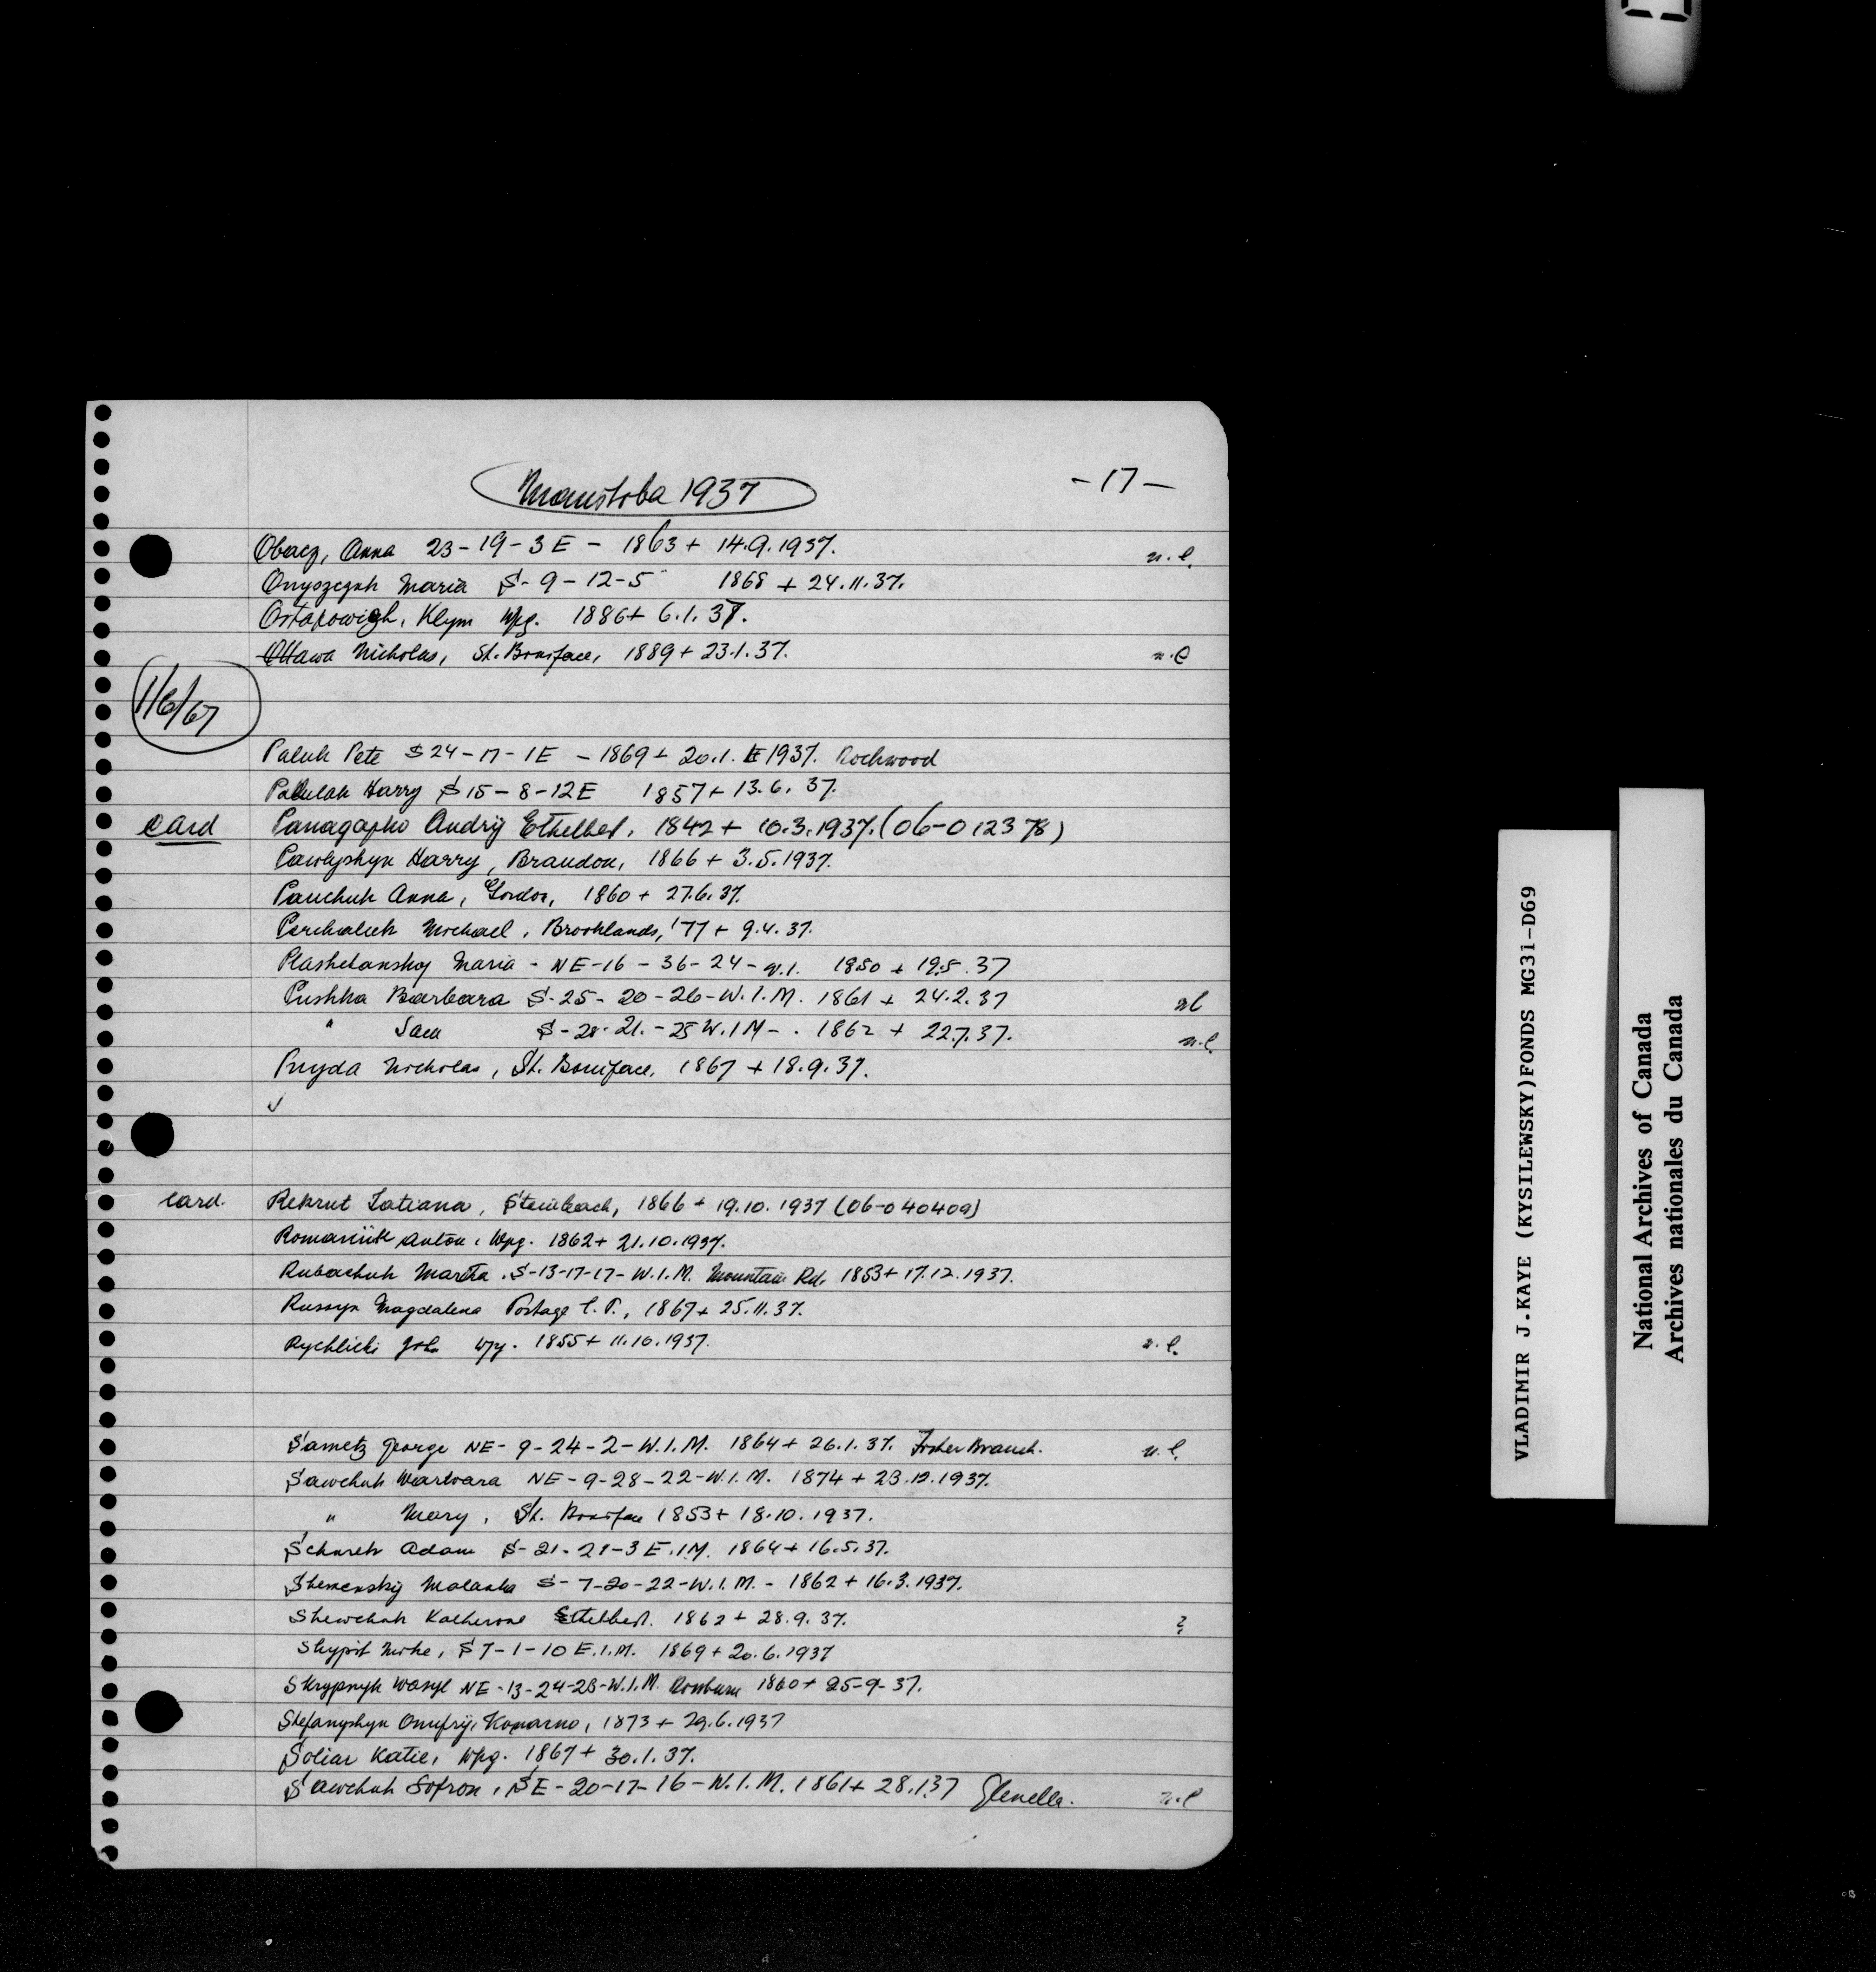 Manitoba 1937
- 17 -
Obacz, Anna 23-19-3E - 1863 + 14.9.1937. n.l.
Onyszczuk Maria S-9-12-5 1868 + 24.11.37.
Ostapowich, Klym Wpg. 1886 + 6.1.37.
Ottawa Nicholas, St. Boniface, 1889 + 23.1.37. n.l
1/6/67
Paluk Pete S24-17-1E - 1869 + 20.1.1937. Rockwood
Harry S15-8-12E 1857 + 13.6.37.
card Panagapko Andrij Ethelbert, 1842 + 10.3.1937. (06-012378)
Pawlyshyn Harry, Brandon, 1866 + 3.5.1937.
Pauchuk Anna, Gordon, 1860 + 27.6.37.
Perchaluk Michael, Brooklands, '77 + 9.4.37.
Plashetansky Maria - NE-16-36-24-w.1. 1850 + 19.5.37
Pushka Barbara S-25-20-26-W.1.M. 1861 + 24.2.37 nl
" Sam S-28-21-25W.1M-. 1862 + 22.7.37. n.l.
Pryda Nicholas, St. Boniface, 1867 + 18.9.37.
card. Rekrut Tatiana, Steinbach, 1866 + 19.10.1937 (06-040409)
Romaniuk Anton, Wpg. 1862 + 21.10.1937.
Rubachuk Martha, S-13-17-17-W.1.M. Mountain Rd. 1853 + 17.12.1937.
Russyn Magdalena Portage l.P., 1867 + 25.11.37.
Rychlicki John Wpg. 1855 + 11.10.1937. n.l.
Sametz George NE-9-24-2-W.1.M. 1864 + 26.1.37. Fisher Branch. n.l.
Sawchuk Warwara NE-9-28-22-W.1.M. 1874 + 23.12.1937.
" Mary, St. Boniface 1853 + 18.10.1937.
Schurek Adam S-21-21-3E.1M. 1864 + 16.5.37.
Shemensky Malanka S-7-20-22-W.1.M. - 1862 + 16.3.1937.
Shewchuk Katherine Ethelbert. 1862 + 28.9.37. ?
Skypit Mike, S7-1-10E.1.M. 1869 + 20.6.1937
Skrypnyk Wasyl NE-13-24-23-W.1.M. Rossburn 1860 + 25-9-37.
Stefanyshyn Onufrij, Komarno, 1873 + 29.6.1937
Soliar Katie, Wpg. 1867 + 30.1.37.
Sawchuk Sofron, SE-20-17-16-W.1.M. 1861 + 28.1.37 Glenella. n.l
VLADIMIR J.KAYE (KYSILEWSKY)FONDS MG31-D69
National Archives of Canada
Archives nationales du Canada